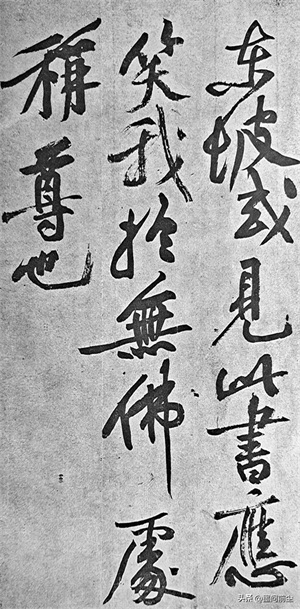 东坡或見此書應
笑我於無佛處
稱尊也
头条 @墨阁前尘